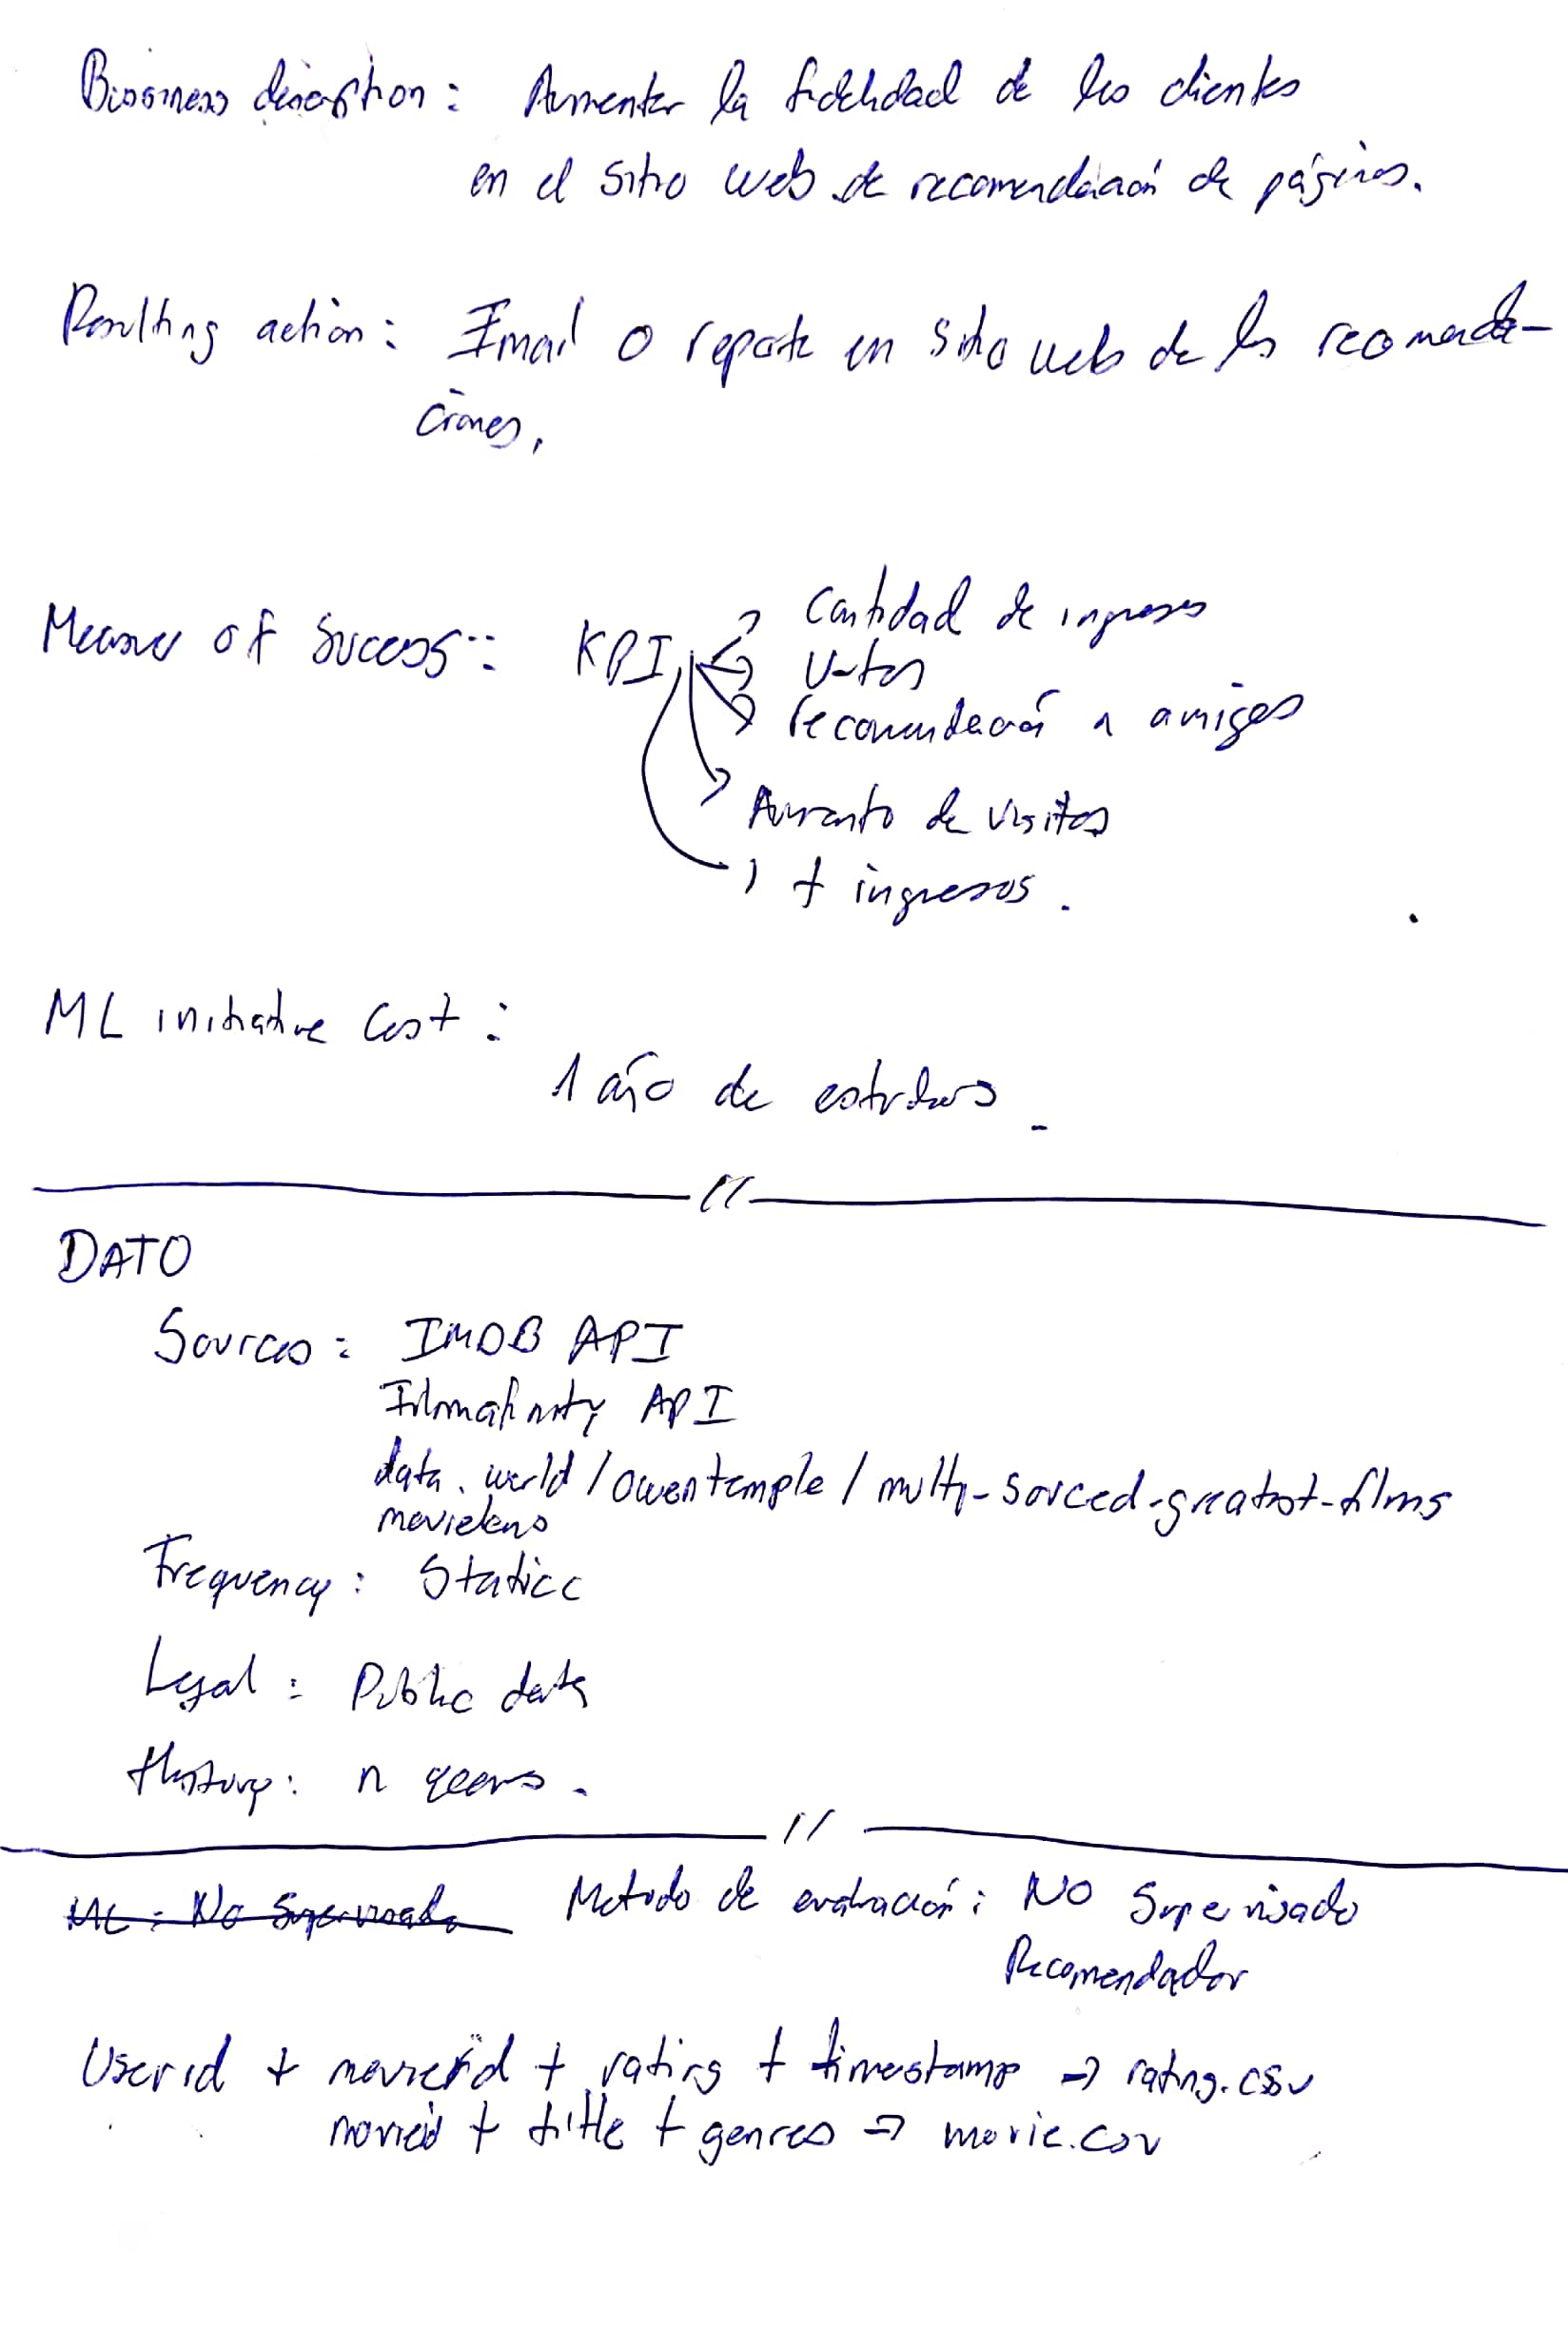 Bussiness description: Aumentar la fidelidad de los clientes
en el sitio web de recomendación de páginas.
Resulting action: Email o reporte en sitio web de las recomenda-
ciones.
Measure of success: KPI
Cantidad de ingresos
Votos
recomendación a amigos
Aumento de visitas
+ ingresos.
ML initiative Cost:
1 año de estudios
DATO
Sources: IMDB API
Filmafinity API
data.world/owentemple/multi-sorced-greatest-films
movielens
Frequency: Static
Legal: Public data
History: n years.
ML: No Supervisado Metodo de evaluación: NO Supervisado
Recomendador
Userid + movieid + rating + timestamp → rating.csv
movieid + title + genres → movie.csv